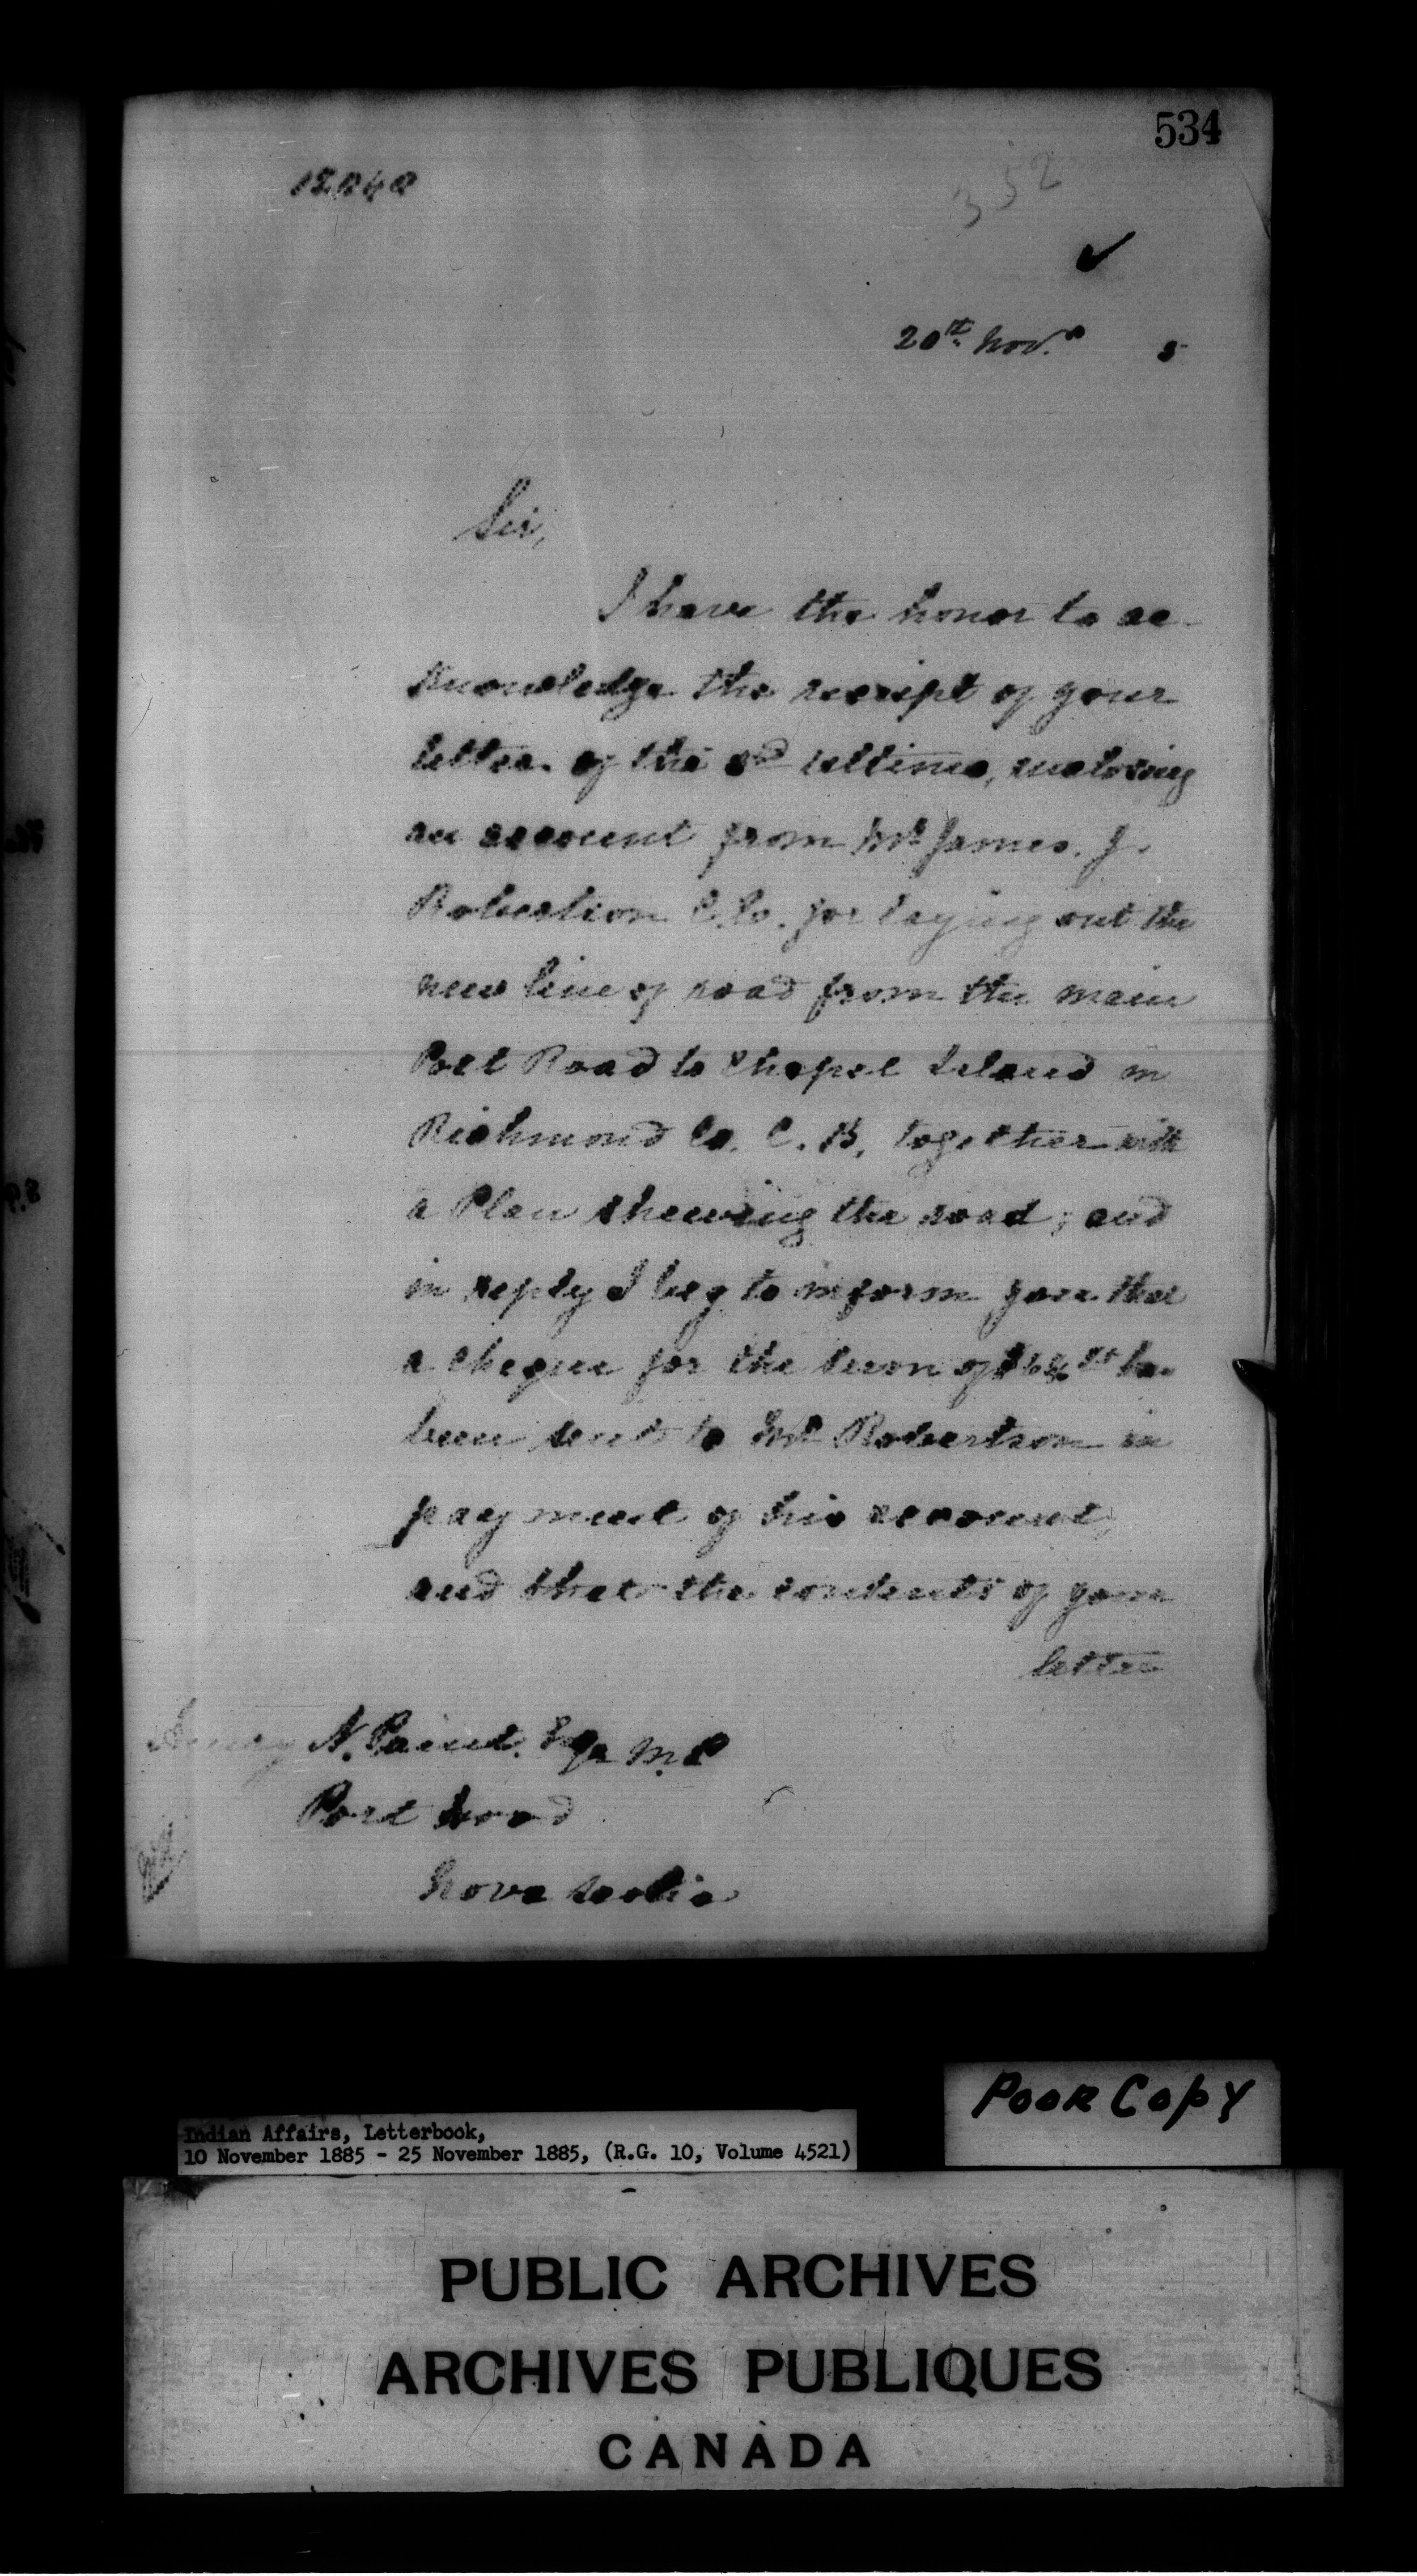 534
352
20th Nov. 5
Sir,
I have the honor to ac-
knowledge the receipt of your
letter of the ultimo, enclosing
an account from Mr James. J.
Robertson C.E. for laying out the
new line of road from the main
Post Road to Chapel Island in
Richmond Co. C. B, together with
a Plan shewing the road; and
in reply I beg to inform you that
a cheque for the sum of has
been sent to Mr Robertson in
payment of his account,
and that the contents of your
letter
Henry N. Paint. Esqr M.P
Port Hood
Nova Scotia
Poor Copy
Indian Affairs, Letterbook,
10 November 1885 - 25 November 1885, (R.G. 10, Volume 4521)
PUBLIC ARCHIVES
ARCHIVES PUBLIQUES
CANADA